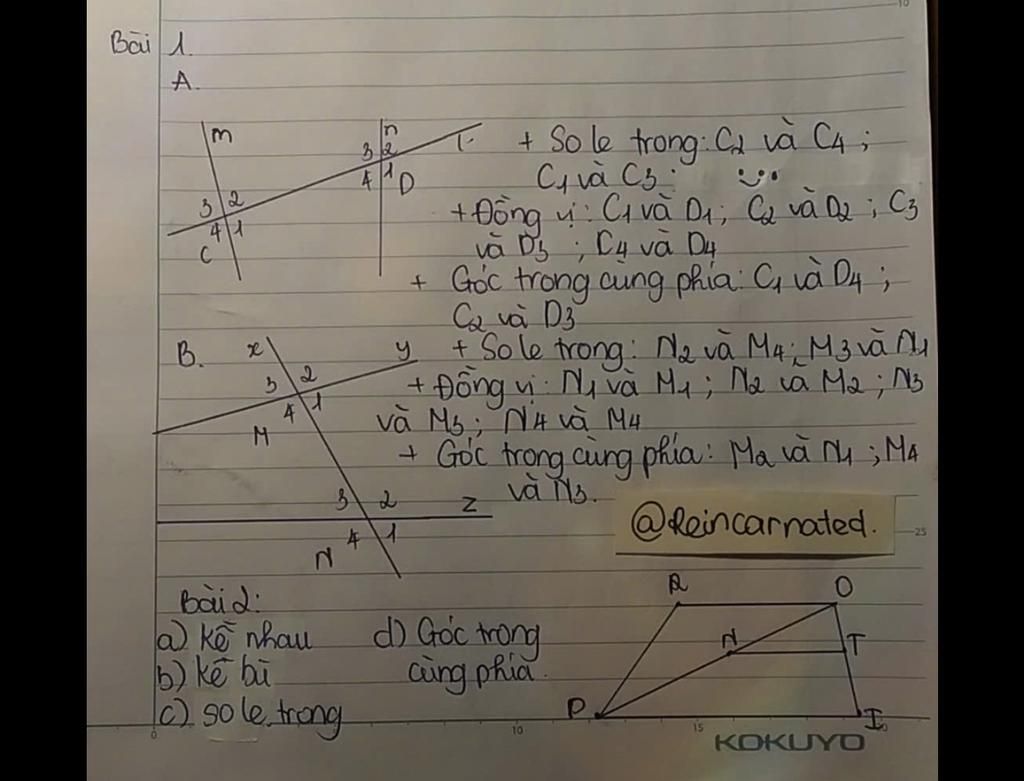 Bài 1.
A.
m
n
t
3 2
3 2
4 1
4 1
C
D
+ So le trong: C2 và C4 ;
C1 và C3 :
+ Đồng vị : C1 và D1 ; C2 và D2 ; C3
và D3 ; C4 và D4
+ Góc trong cùng phía: C1 và D4 ;
C2 và D3
B.
x
y
3 2
4 1
M
3 2
z
4 1
N
+ So le trong : N2 và M4 ; M3 và N1
+ Đồng vị : N1 và M1 ; N2 và M2 ; N3
và M3 ; N4 và M4
+ Góc trong cùng phía : M2 và N1 ; M4
và N3.
@Reincarnated.
25
Bài 2:
a) Kề nhau
b) Kề bù
c) so le trong
d) Góc trong
cùng phía.
R
O
N
T
P
I
0
10
15
KOKUYO